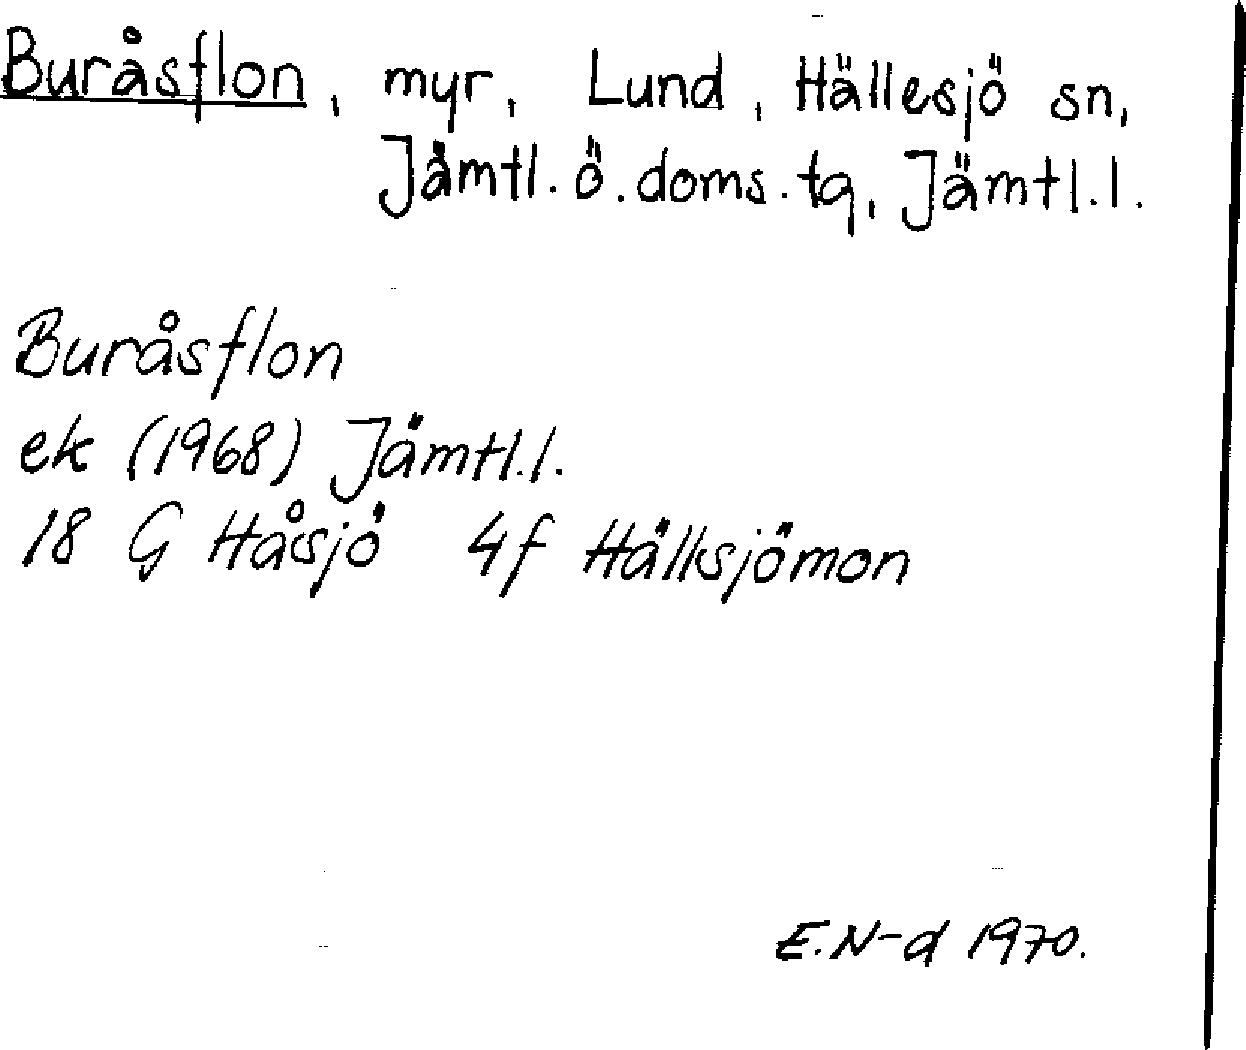 Buråsflon, myr, Lund, Hällesjö sn,
Jämtl. ö. doms. tq, Jämtl. l.
Buråsflon
ek (1968) Jämtl. l.
18 G Håsjö 4f Hällsjömon
E.N-d 1970.